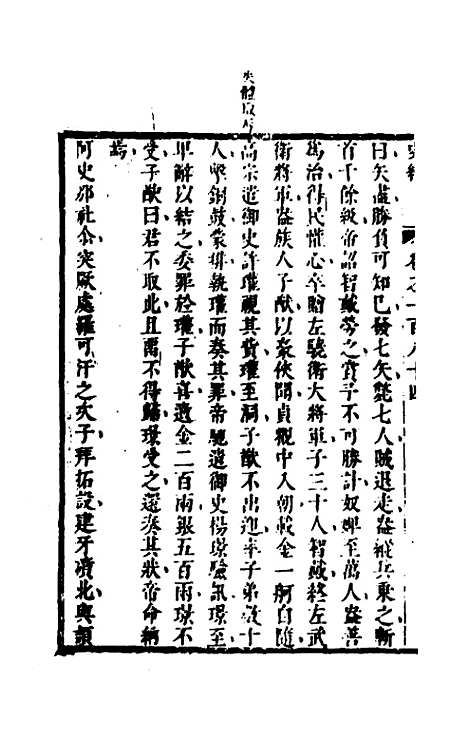 史緯 卷之一百八十四
曰矢盡勝負可知已發七矢斃七人賊退走盎縱兵乘之斬
首千餘級帝詔智戴勞之賞予不可勝計奴婢至萬人盎善
爲治得民懽心卒贈左驍衛大將軍子三十人智戴終左武
衛將軍盎族人子猷以豪俠聞貞觀中入朝載金一舸自隨
高宗遣御史許瓘視其貲瓘至洞子猷不出迎率子弟數十
人擊銅鼓蒙排執瓘而奏其罪帝馳遣御史楊璟驗訊璟至
卑辭以結之委罪於瓘子猷喜遺金二百兩銀五百兩璟不
受子猷曰君不取此且畱不得歸璟受之還奏其狀帝命納
焉
阿史那社尒突厥處羅可汗之次子拜拓設建牙磧北與頡